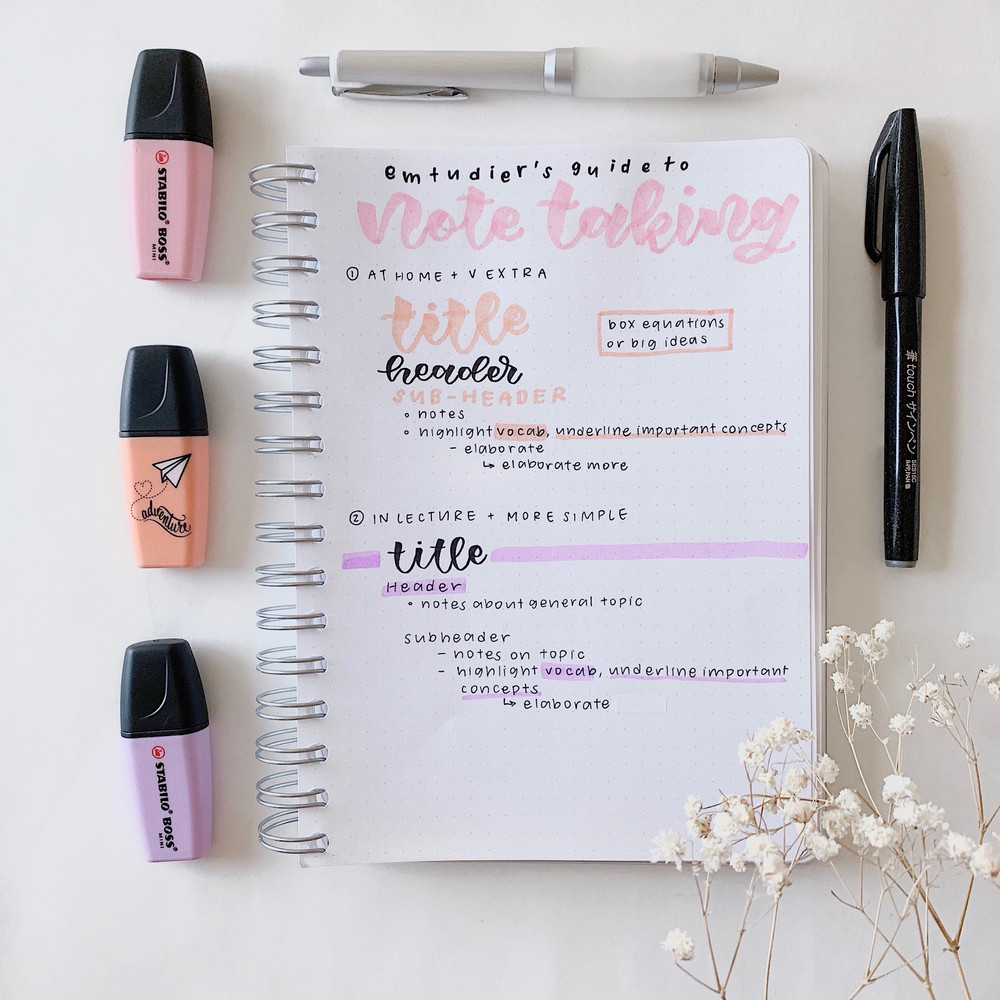 emtudier's guide to
note taking
① AT HOME + V EXTRA
title
box equations
or big ideas
header
SUB-HEADER
◦ notes
◦ highlight vocab, underline important concepts
- elaborate
↳ elaborate more
② IN LECTURE + MORE SIMPLE
title
Header
◦ notes about general topic
subheader
- notes on topic
- highlight vocab, underline important
concepts
↳ elaborate
STABILO® BOSS®
MINI
adventure
STABILO® BOSS®
MINI
touch サインペン
SES15C